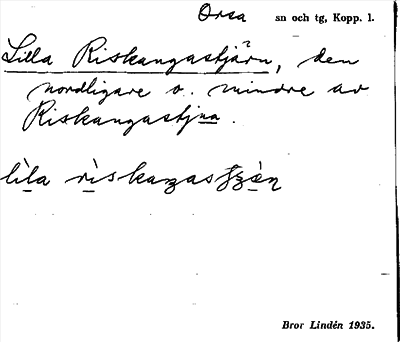 Orsa sn och tg, Kopp. l.
Lilla Riskangastjärn, den
nordligare o. mindre av
Riskangastjna.
Bror Lindén 1935.